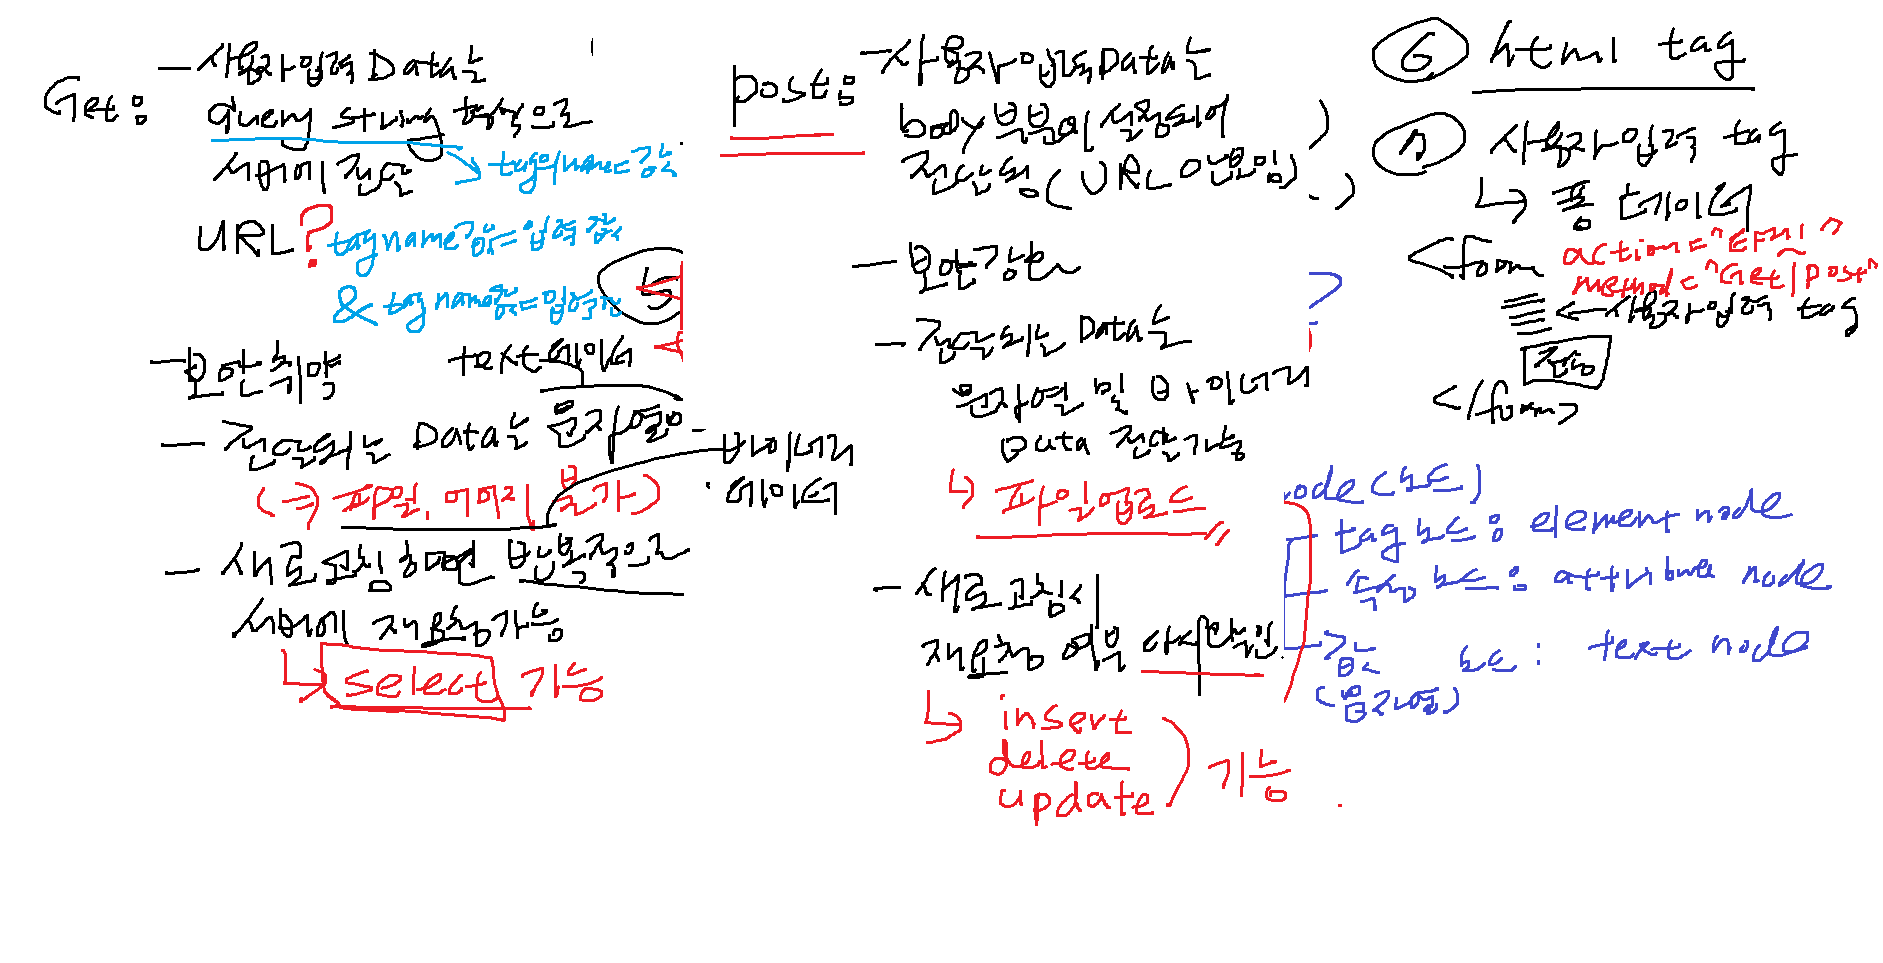 Get:
- 사용자입력 Data는
query string 형식으로
서버에 전달
tag의 name=값
URL ? tag name값=입력값
& tag name값=입력값
- 보안취약
text 데이터
- 전달되는 Data는 문자열만
(⇒ 파일, 이미지 불가)
바이너리
데이터
- 새로고침하면 반복적으로
서버에 재요청가능
↳ select 기능
post:
- 사용자입력 Data는
body 부분에 설정되어
전달됨 (URL 안보임)
- 보안강화
- 전달되는 Data는
문자열 및 바이너리
Data 전달가능
↳ 파일업로드
- 새로고침시
재요청 여부 다시 확인
↳ insert
delete
update
기능
⑥ html tag
사용자입력 tag
↳ 폼 데이터
<form action="타겟"
method="Get|post"
← 사용자입력 tag
전송
</form>
node (노드)
tag 노드: element node
속성 노드: attribute node
값 노드: text node
(문자열)